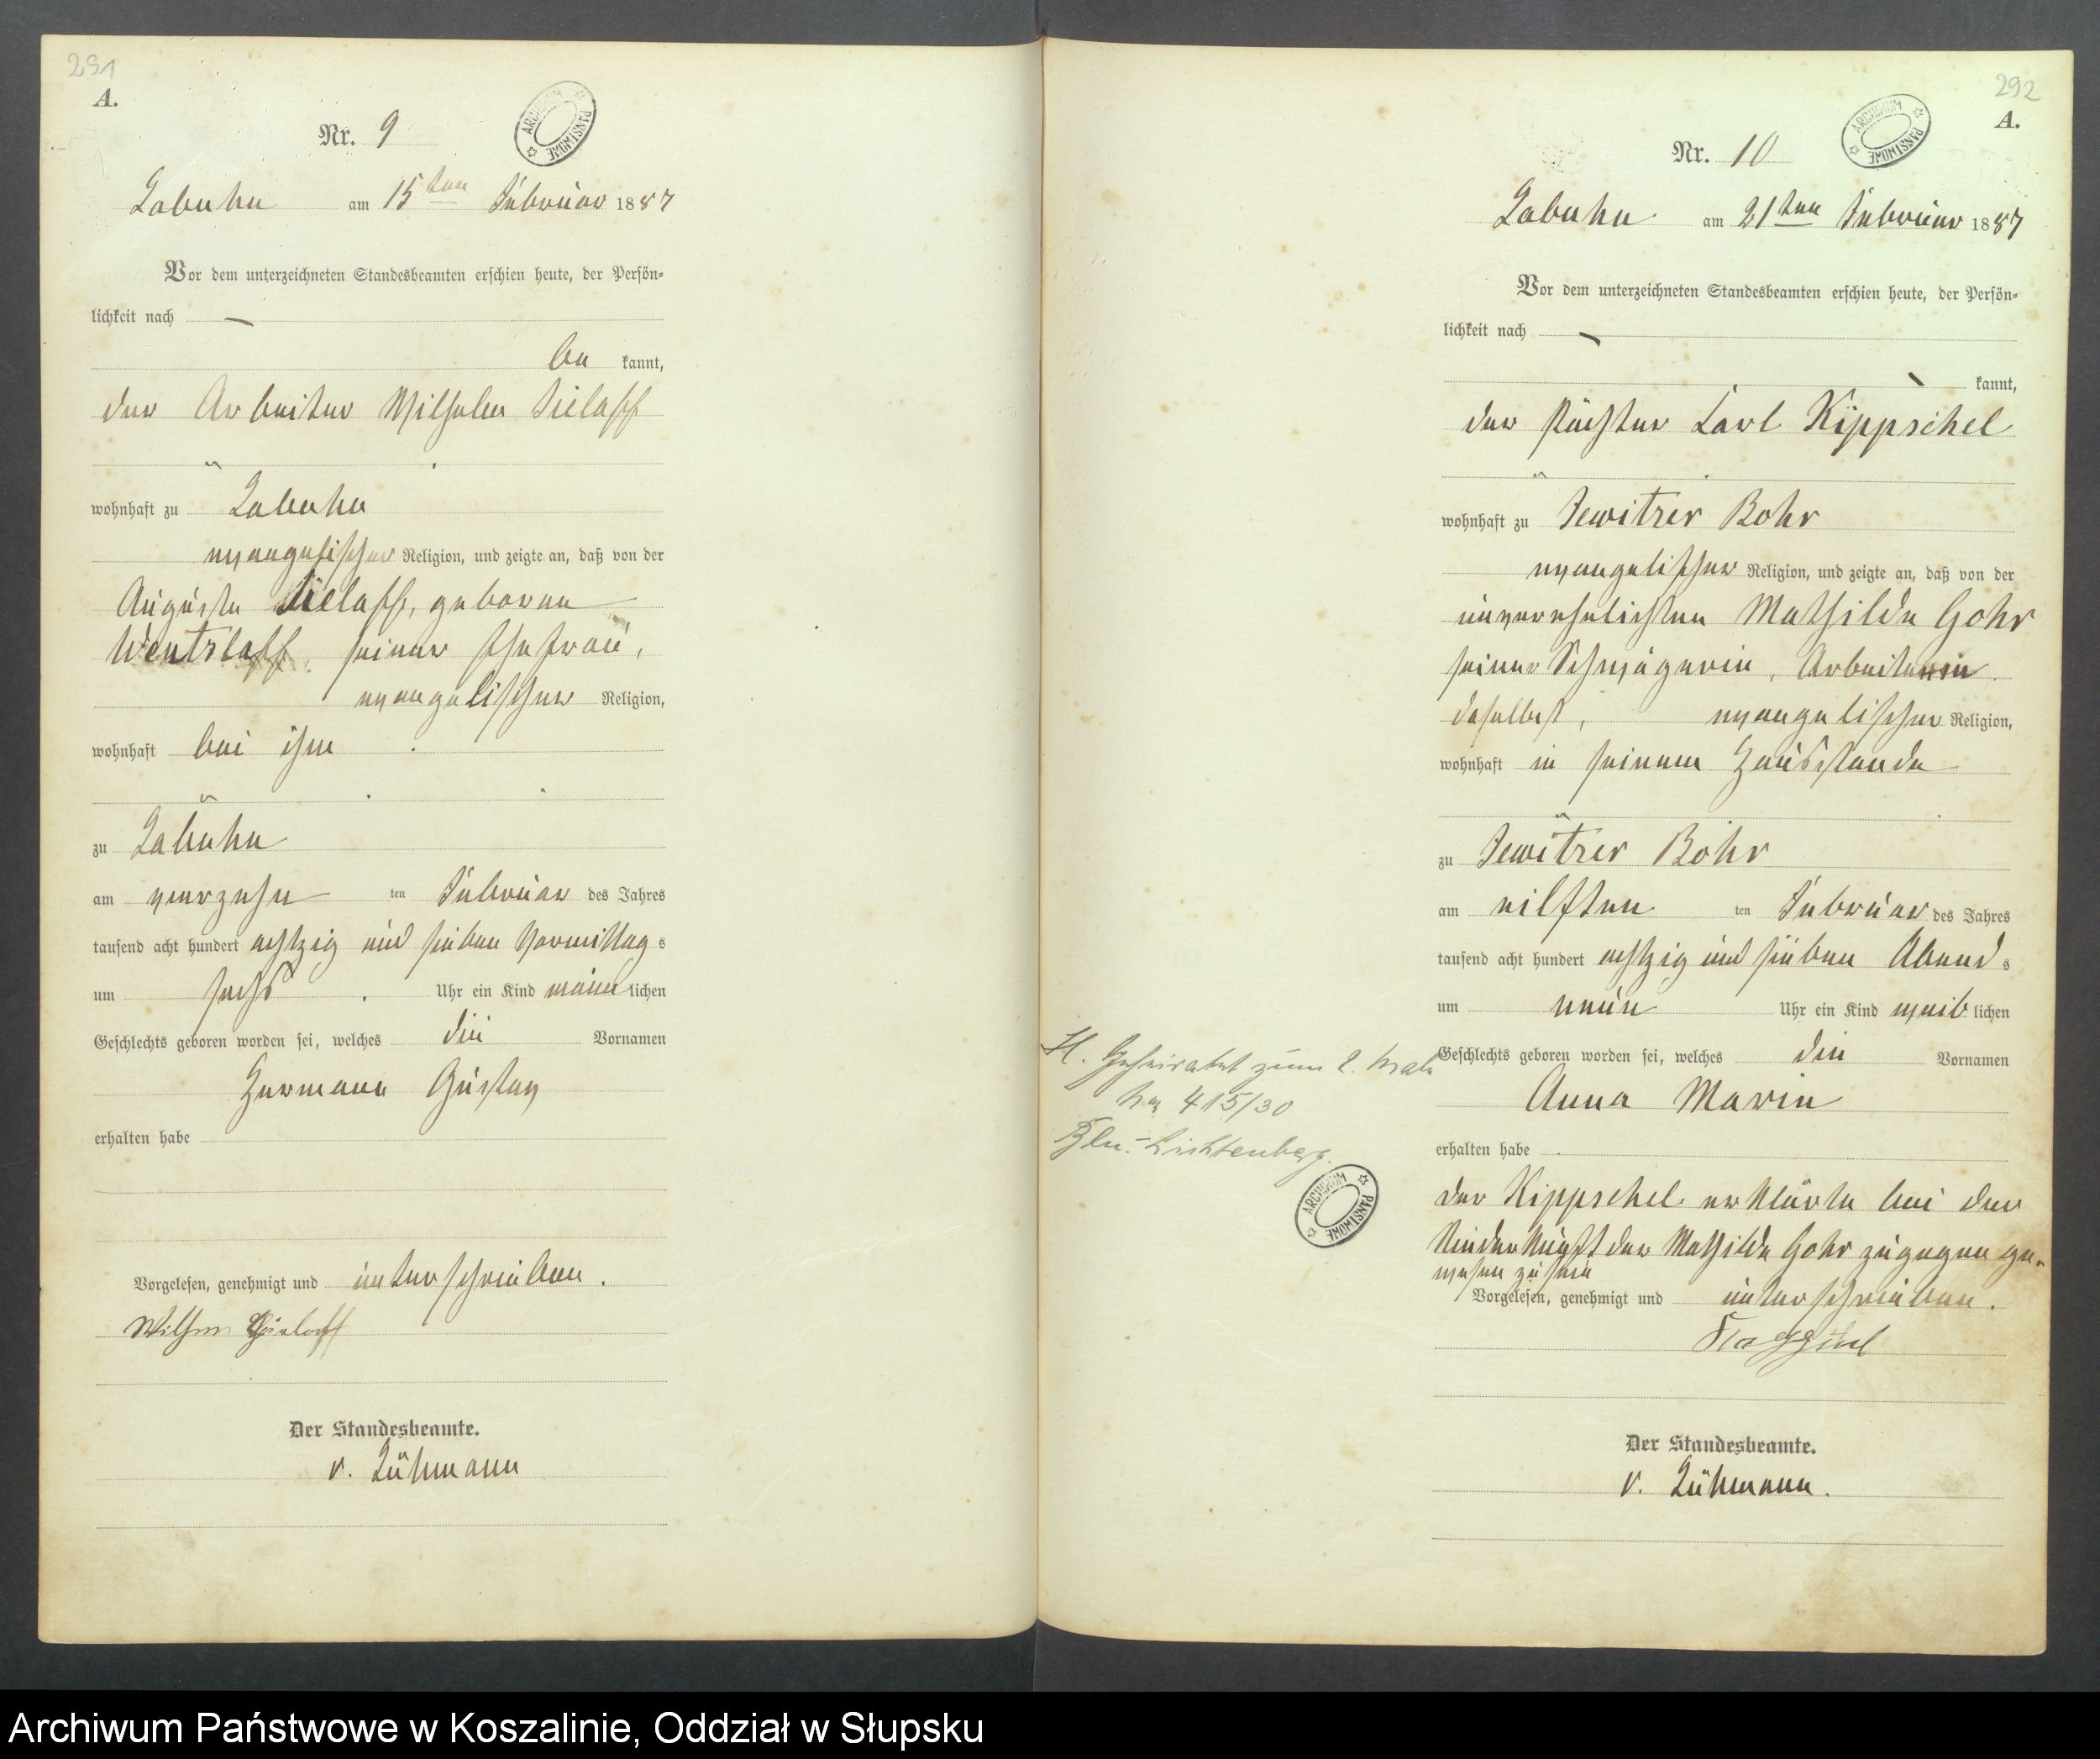 291
A.
Nr. 9
ARCHIWUM PAŃSTWOWE
Labuhn am 15ten Februar 1887
Vor dem unterzeichneten Standesbeamten erschien heute, der Persön-
lichkeit nach —
be kannt,
der Arbeiter Wilhelm Sielaff
wohnhaft zu Labuhn
evangelischer Religion, und zeigte an, daß von der
Auguste Sielaff, geborene
Wentzlaff seiner Ehefrau,
evangelischer Religion,
wohnhaft bei ihm
zu Labuhn
am vierzehn ten Februar des Jahres
tausend acht hundert achtzig und sieben Vormittag s
um sechs Uhr ein Kind männ lichen
Geschlechts geboren worden sei, welches die Vornamen
Hermann Gustav
erhalten habe
Vorgelesen, genehmigt und unterschrieben.
Wilhem Sielaff
Der Standesbeamte.
v. Lühmann
292
A.
Nr. 10
ARCHIWUM PAŃSTWOWE
Labuhn am 21ten Februar 1887
Vor dem unterzeichneten Standesbeamten erschien heute, der Persön-
lichkeit nach —
kannt,
der Pächter Carl Kippschel
wohnhaft zu Jewitzer Bohr
evangelischer Religion, und zeigte an, daß von der
unverehelichten Mathilde Gohr
seiner Schwägerin, Arbeiterin
daselbst, evangelischer Religion,
wohnhaft in seinem Hausstande
zu Jewitzer Bohr
am eilften ten Februar des Jahres
tausend acht hundert achtzig und sieben Abend s
um neun Uhr ein Kind weib lichen
Geschlechts geboren worden sei, welches die Vornamen
Anna Marie
erhalten habe
der Kippschel erklärte bei der
Niederkunft der Mathilde Gohr zugegen ge-
wesen zu sein
Vorgelesen, genehmigt und unterschrieben.
Der Standesbeamte.
v. Lühmann.
H. Geheiratet zum 2. Male
415/30
Bln.-Lichtenberg.
ARCHIWUM PAŃSTWOWE
Archiwum Państwowe w Koszalinie, Oddział w Słupsku